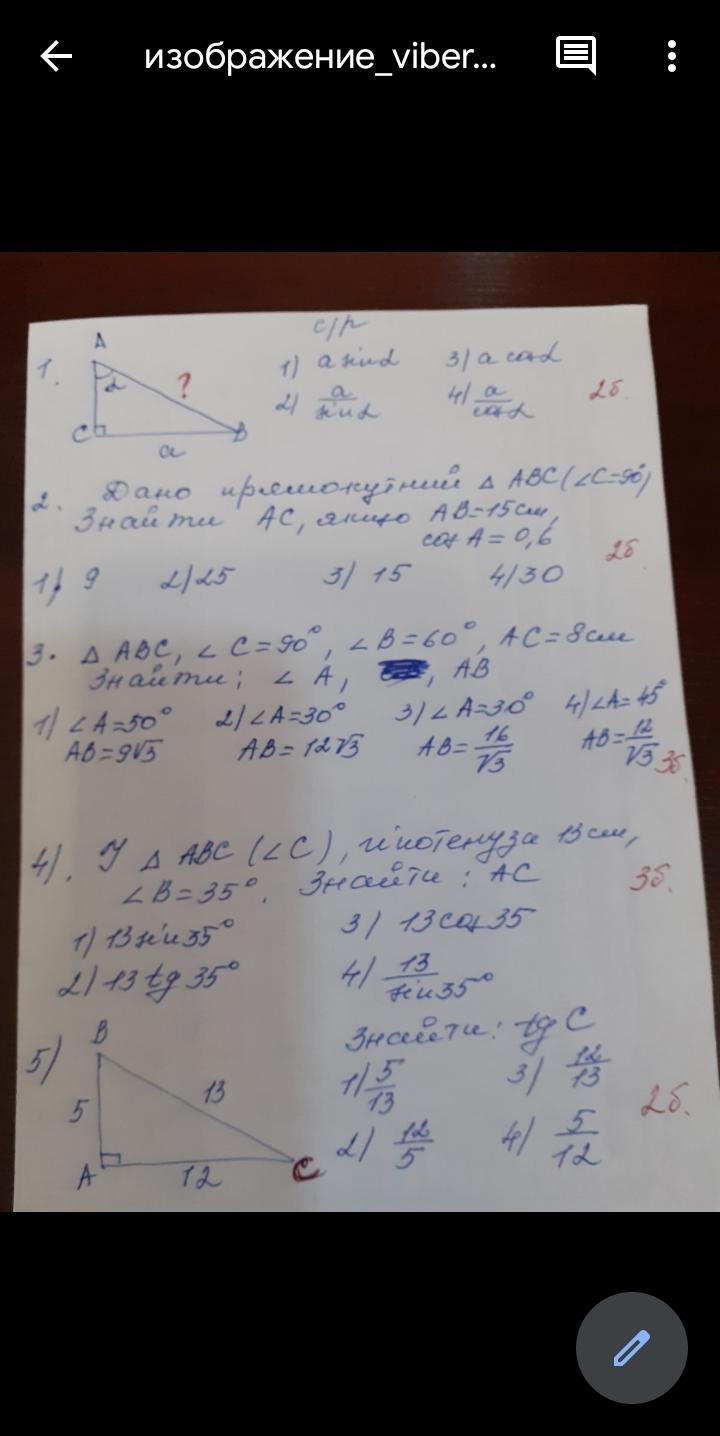 изображение_viber...
с/р
1.
A
α
?
C
a
B
1) a sin α 3) a cos α
2) a/sin α 4) a/cos α
2б.
2. Дано прямокутний △ ABC (∠C=90°)
Знайти AC, якщо AB=15см,
cos A = 0,6
2б
1) 9 2) 25 3) 15 4) 30
3. △ ABC, ∠C=90°, ∠B=60°, AC=8см
Знайти: ∠A, , AB
1) ∠A=50° 2) ∠A=30° 3) ∠A=30° 4) ∠A=45°
AB=9√3 AB=12√3 AB=16/√3 AB=12/√3
3б.
4). У △ ABC (∠C), гіпотенуза 13см,
∠B=35°. Знайти: AC
3б.
1) 13sin35° 3) 13cos35
2) 13 tg 35° 4) 13/sin35°
5)
B
5
13
A
12
C
Знайти: tg C
1) 5/13 3) 12/13
2) 12/5 4) 5/12
2б.